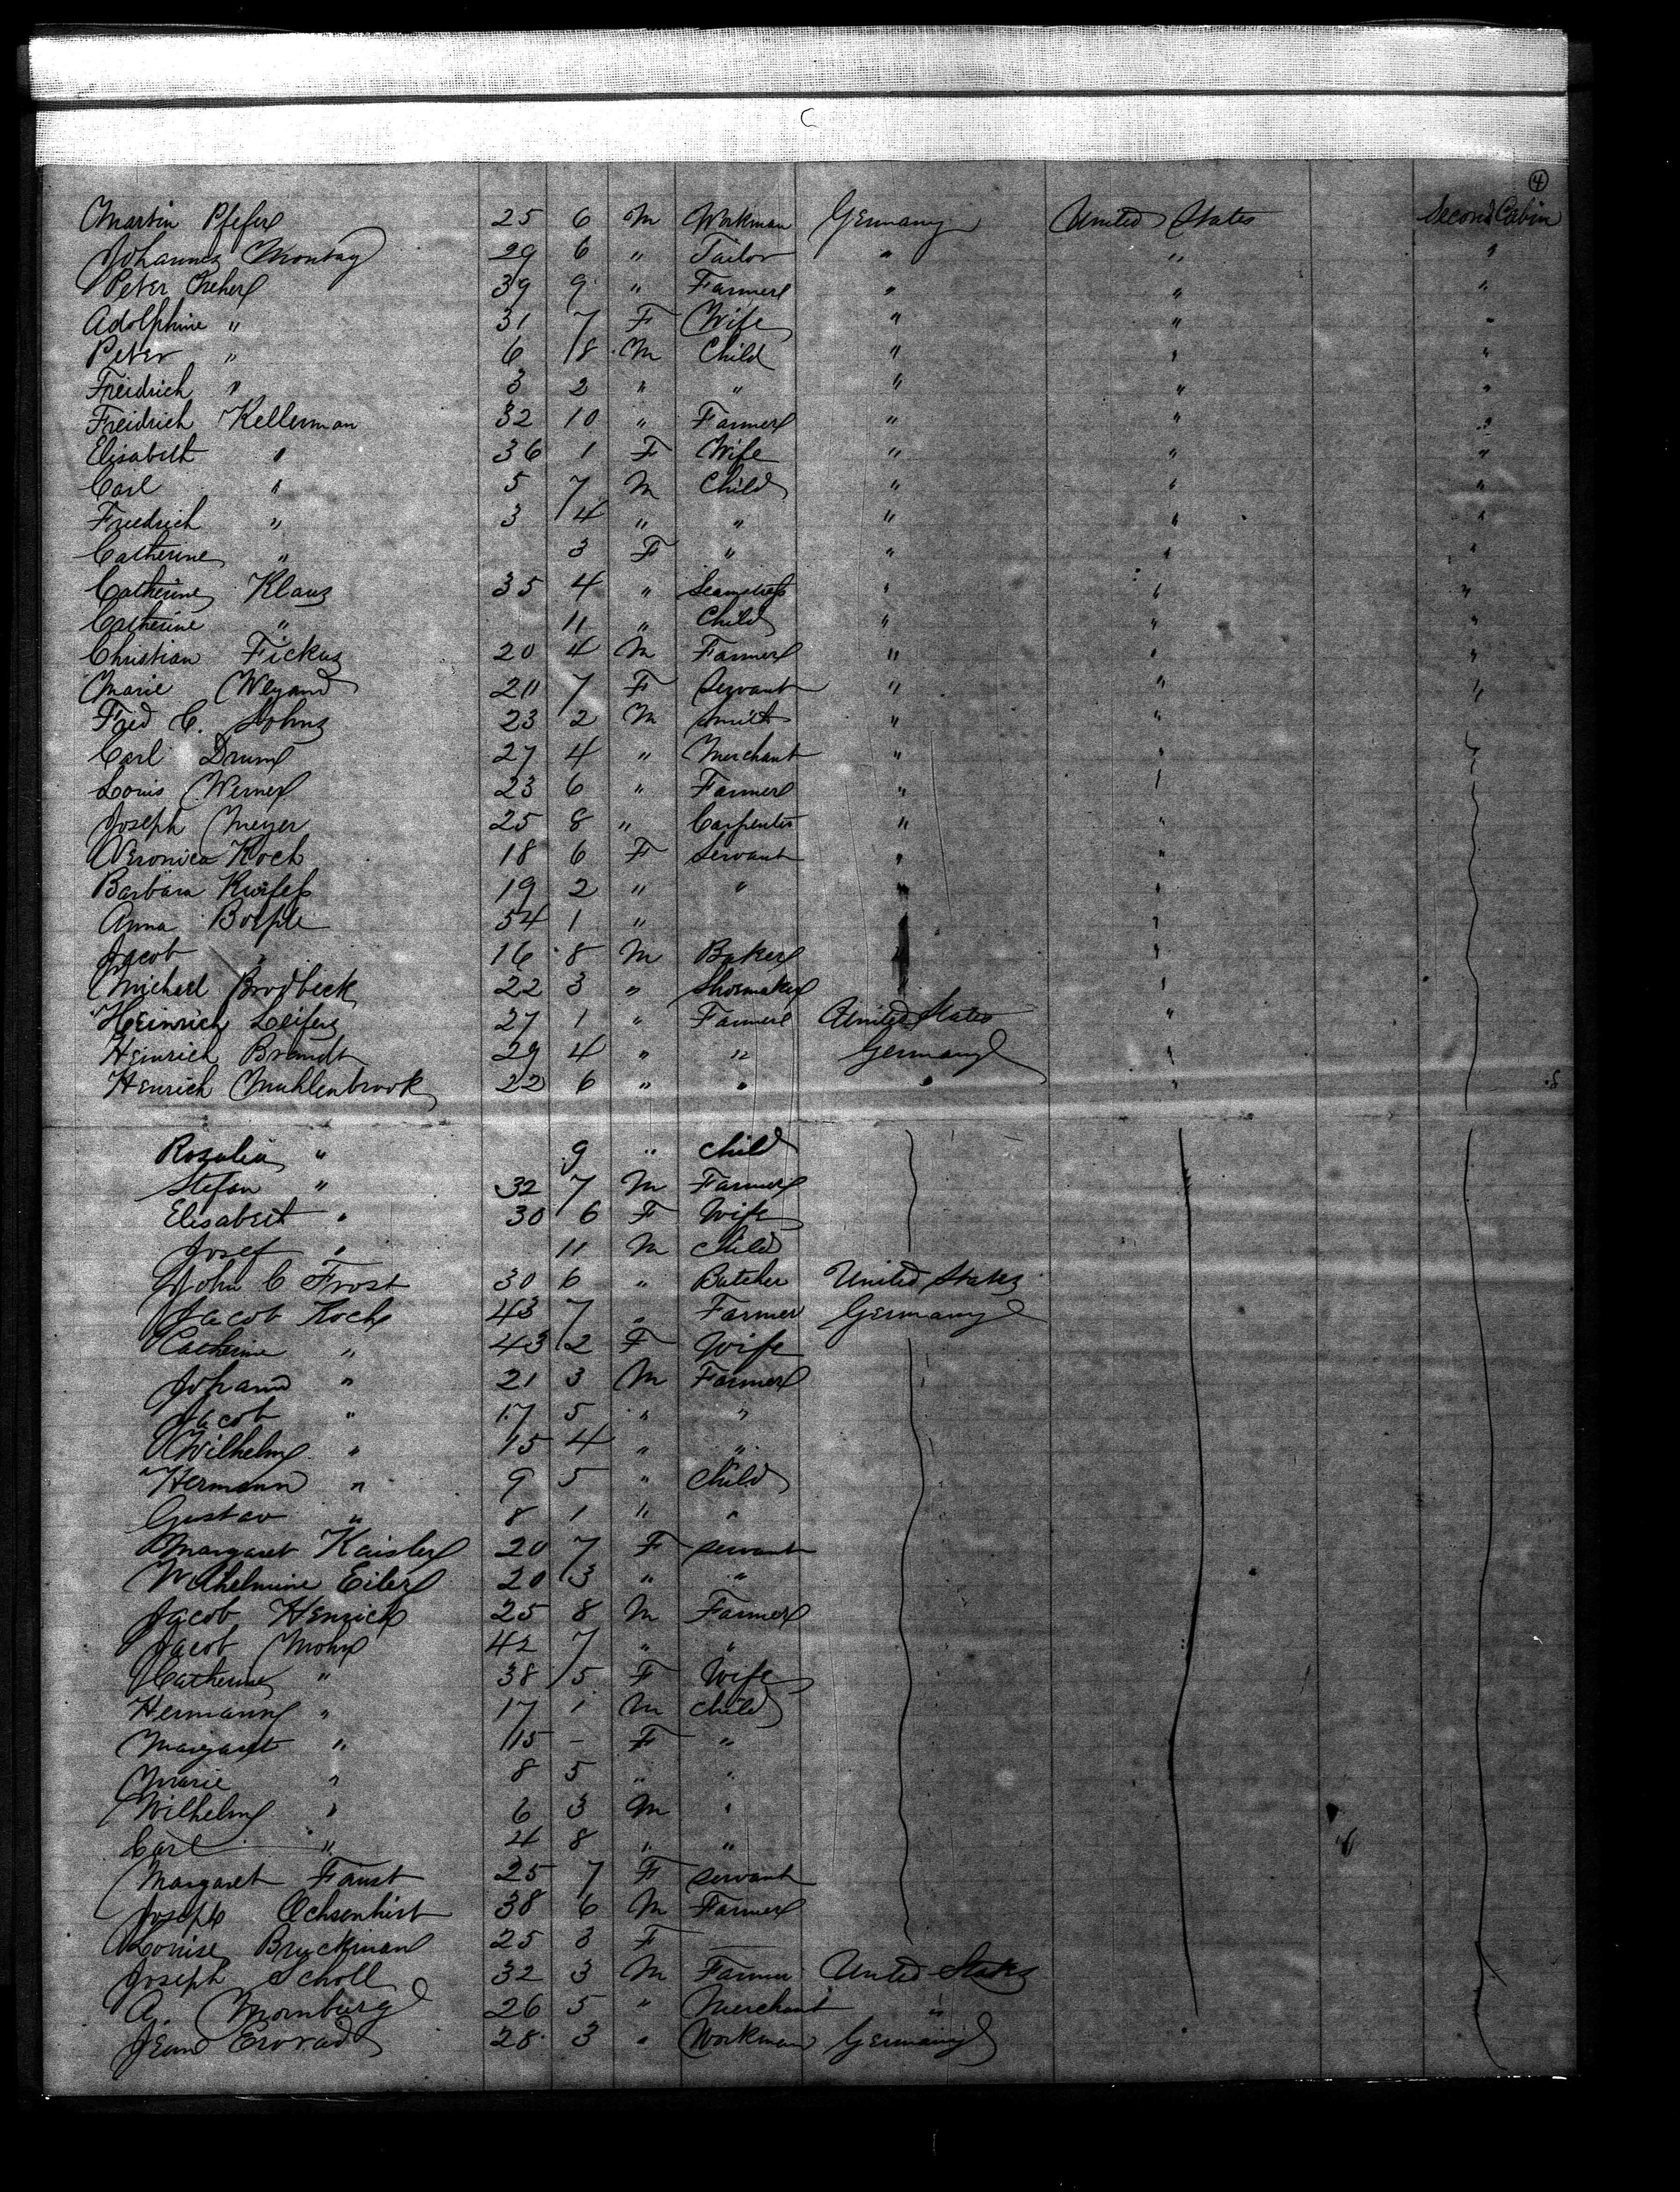 ④
Martin Pfefer 25 6 M Workman Germany United States Second Cabin
Johannes Montag 29 6 " Tailor " " "
Peter 39 9 " Farmer " " "
Adolphine " 31 7 F Wife " " "
Peter " 6 8 M Child " " "
Freidrich " 3 2 " " " " "
Freidrich Kellerman 32 10 " Farmer " " "
Elisabeth " 36 1 F Wife " " "
Carl " 5 7 M Child " " "
Friedrich " 3 4 " " " " "
Catherine " 3 F " " " "
Catherine Klaus 35 4 " Seamstress " " "
Catherine " 11 " Child " " "
Christian Fickus 20 4 M Farmer " " "
Marie Weyand 20 7 F Servant " " "
Fred C. Johns 23 2 M Smith " "
Carl Drum 27 4 " Merchant " "
Louis Werner 23 6 " Farmer " "
Joseph Meyer 25 8 " Carpenter " "
Veronica Koch 18 6 F Servant " "
Barbara 19 2 " " " "
Anna 54 1 " "
Jacob " 16 8 M Baker "
Michael Brodbeck 22 3 " Shoemaker "
Heinrich Leifers 27 1 " Farmer United States "
Heinrich Brandt 29 4 " " Germany "
Henrich Muhlenbrook 22 6 " " " "
Rosalia " 9 " Child
Stefan " 32 7 M Farmer
Elisabeth " 30 6 F Wife
Josef " 11 M Child
John C Frost 30 6 " Butcher United States
Jacob Koch 43 7 " Farmer Germany
Catherine " 43 2 F Wife
Johann " 21 3 M Farmer
Jacob " 17 5 " "
Wilhelm " 15 4 " "
Hermann " 9 5 " Child
Gustav " 8 1 " "
Margaret Kaisler 20 7 F servant
Wilhelmine Eiler 20 3 " "
Jacob Henrich 25 8 M Farmer
Jacob Mohr 42 7 " "
Catherine " 38 5 F Wife
Hermann " 17 1 M child
Margaret " 15 - F "
Marie " 8 5 " "
Wilhelm " 6 3 M "
Carl " 4 8 " "
Margaret Faust 25 7 F servant
Joseph Ochsenhirt 38 6 M Farmer
Louise Bruckman 25 3 F
Joseph Scholl 32 3 M Farmer United States
A. Mornburg 26 5 " Merchant "
28 3 " Workman Germany